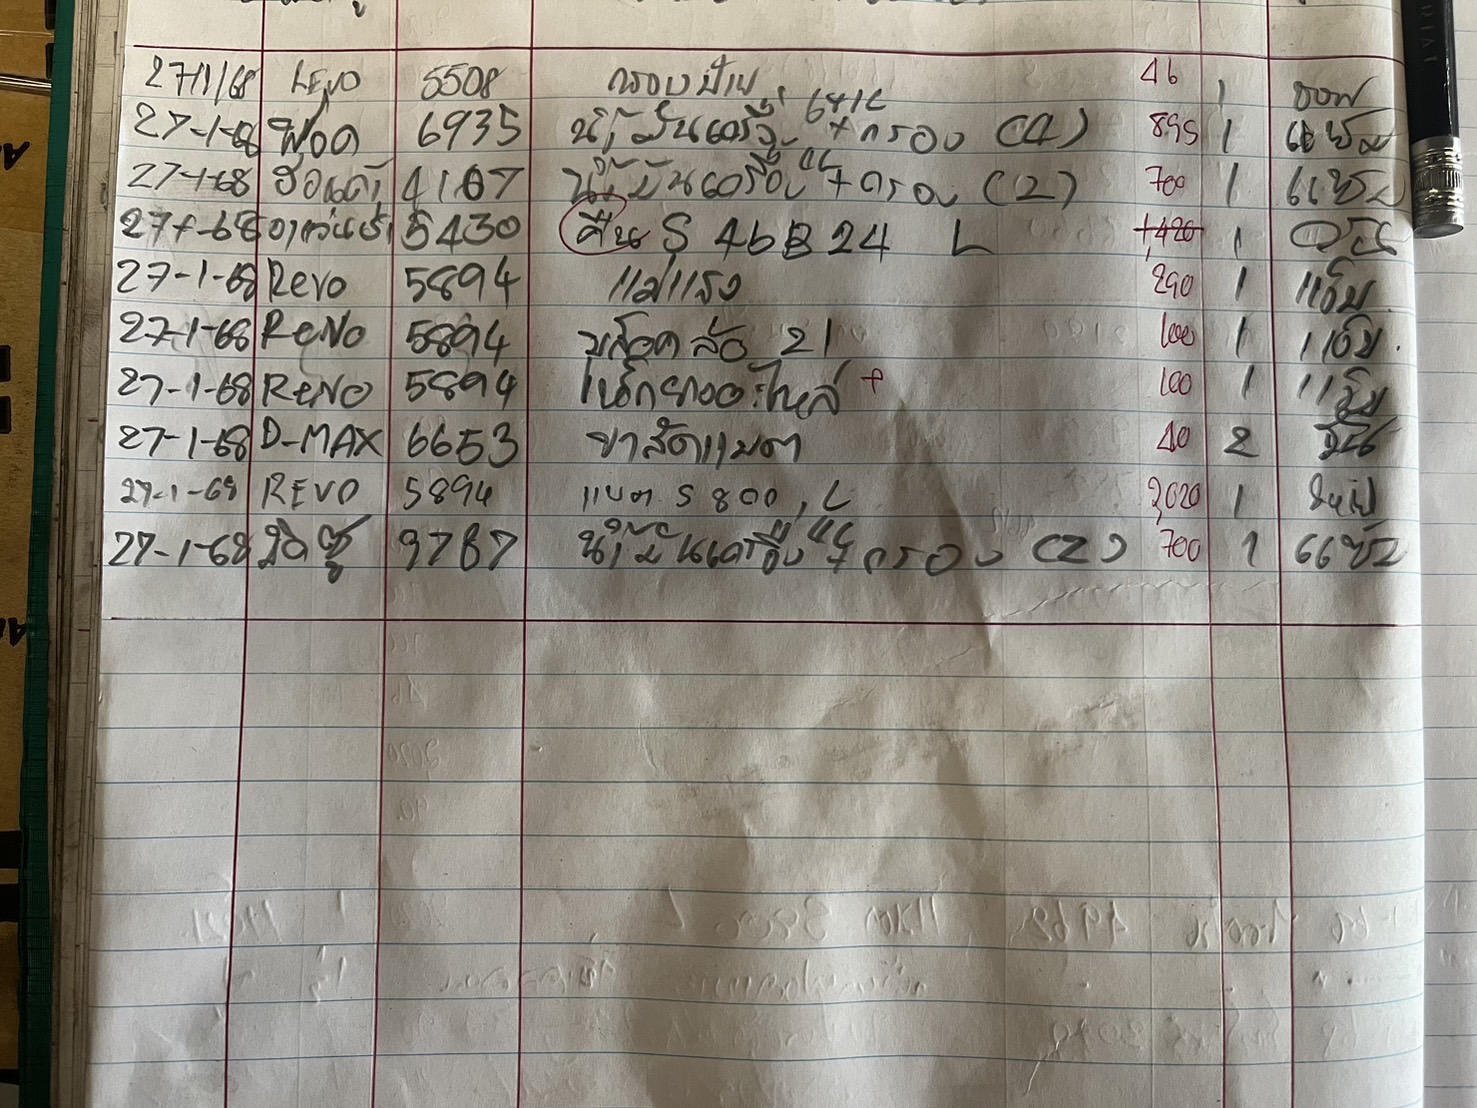 27/1/68 REVO 5508 กรองปั้ม 46 1 ออฟ
27-1-68 ฟอด 6935 น้ำมันเครื่อง 6+1L + กรอง (4) 895 1
27-1-68 ฮอนด้า 4107 น้ำมันเครื่อง 4L + กรอง (2) 700 1
27-1-68 5430 คืน S 46B24 L 1,420 1
27-1-68 Revo 5894 แม่แรง 290 1 แอ๊ม
27-1-68 ReVo 5894 บล๊อค ล้อ 21 100 1 แอ๊ม.
27-1-68 ReVO 5894 เหล็กยกอะไหล่ + 100 1 แอ๊ม
27-1-68 D-MAX 6653 ขารัดแบต 40 2
27-1-68 REVO 5894 แบต S 800, L 2,020 1
27-1-68 มิตซู 9787 น้ำมันเครื่อง 4L + กรอง (2) 700 1